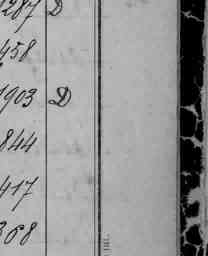 1287 D
458
1903 D
844
417
368